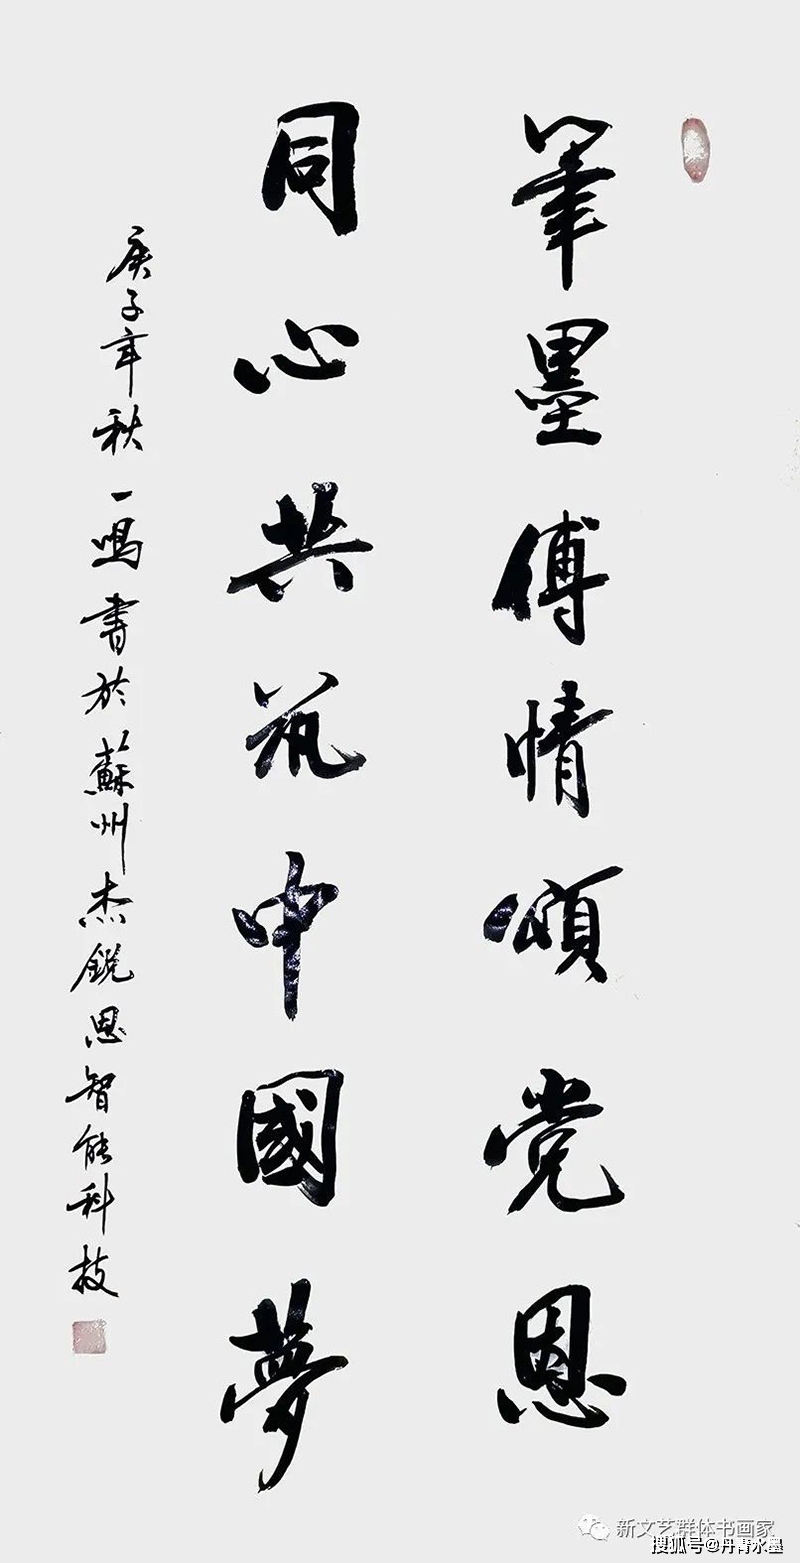 筆墨傅情頌党恩
同心共筑中國夢
庚子年秋一鳴書於蘇州杰銳恩智能科技
新文艺群体书画家
搜狐号@丹青水墨